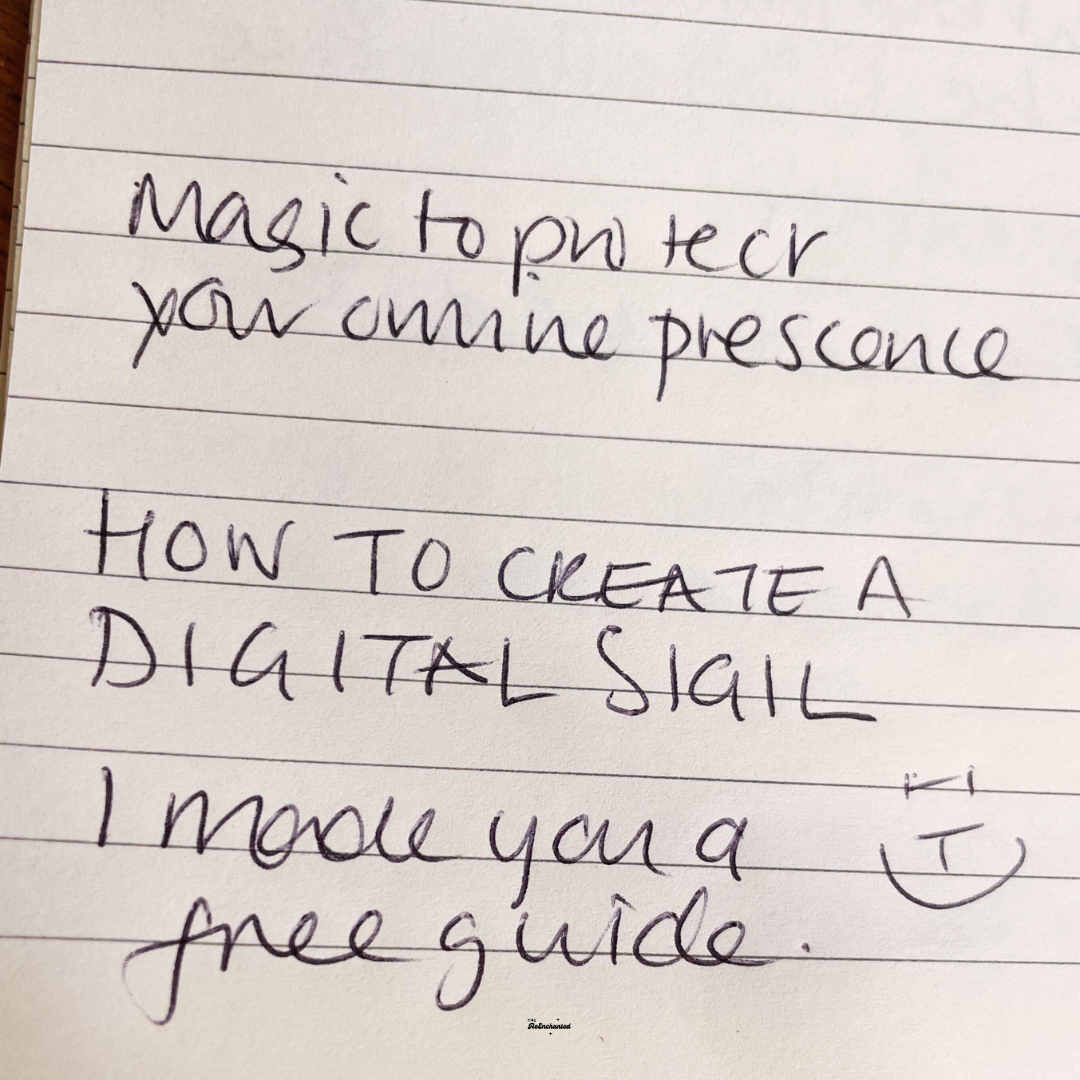 Magic to protect
your online prescence
HOW TO CREATE A
DIGITAL SIGIL
I made you a
free guide.
THE
ReEnchanted